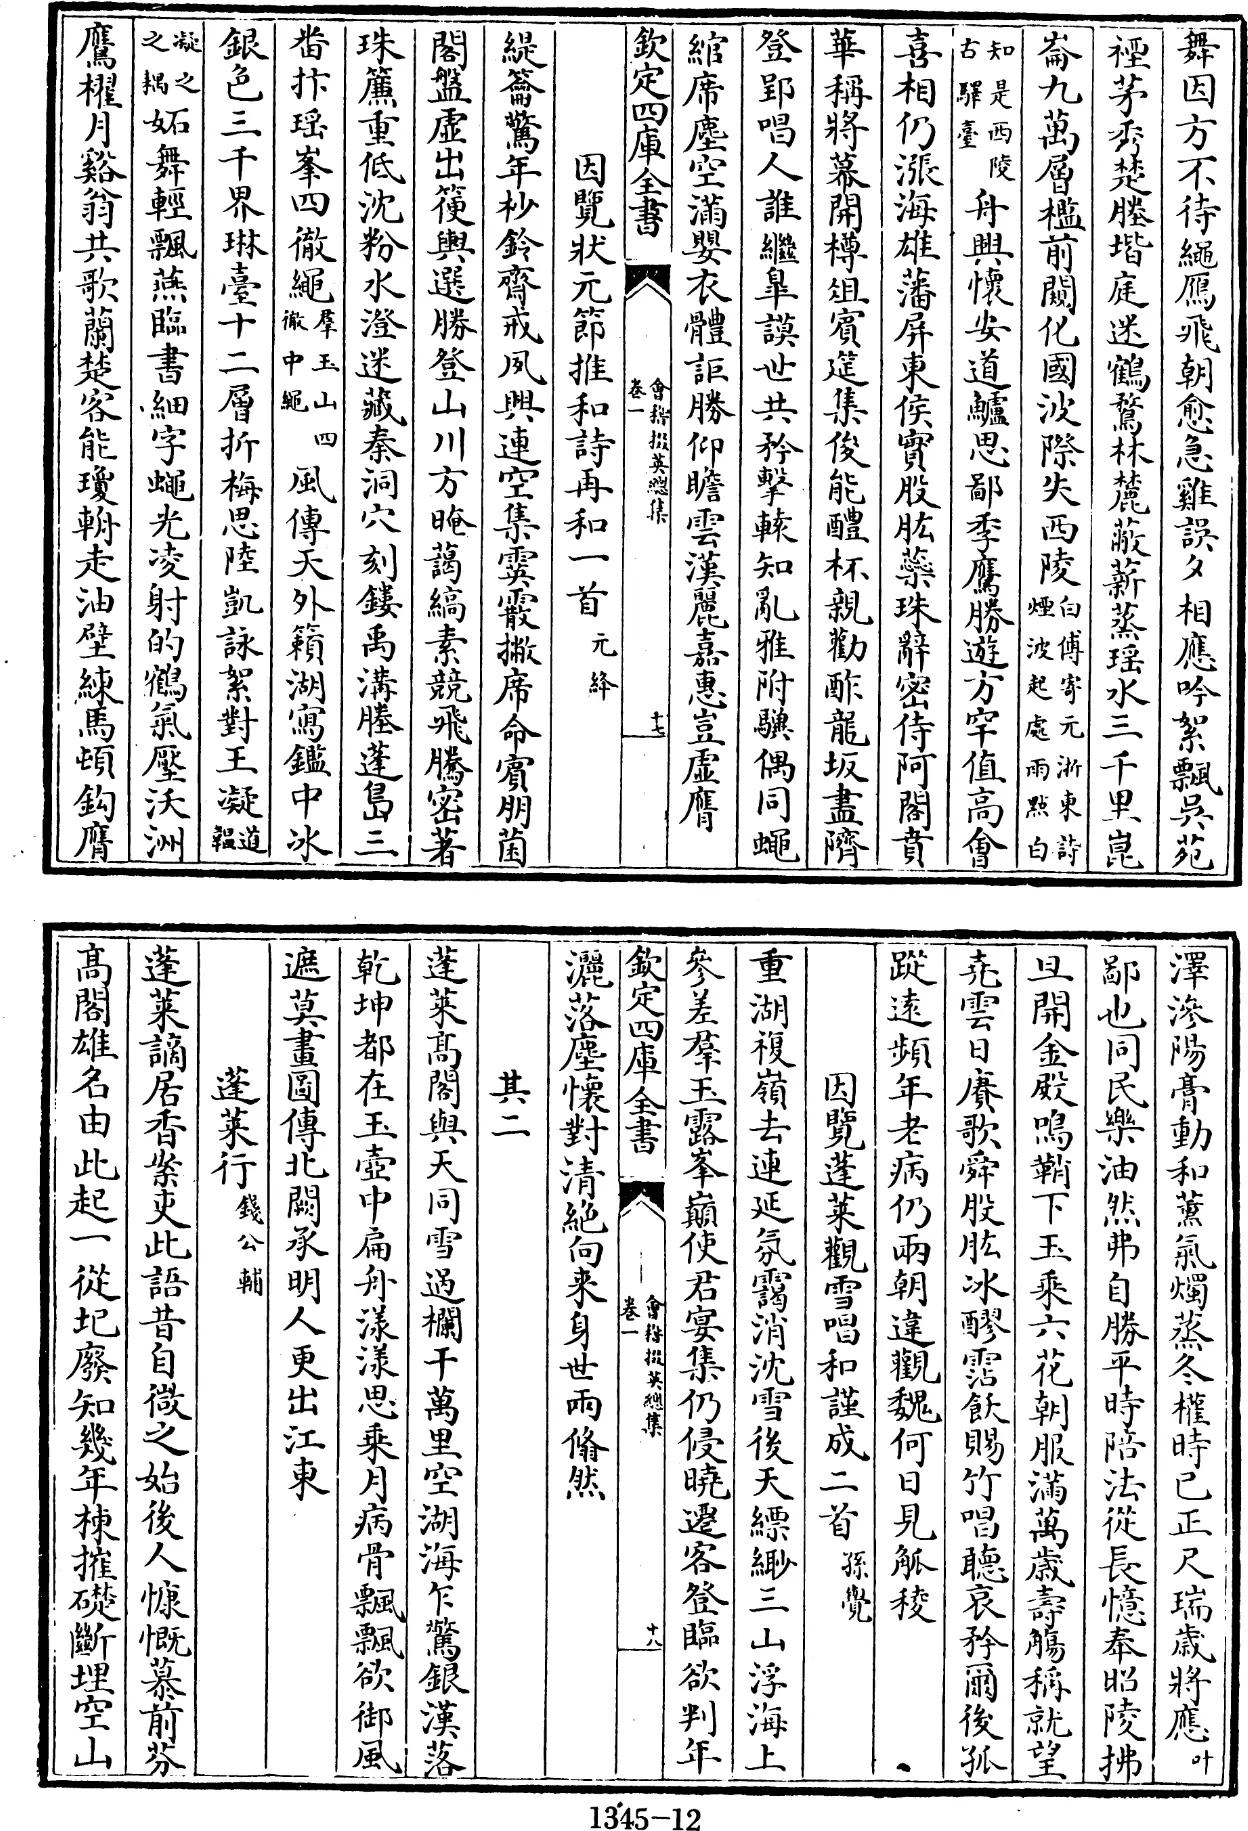 舞因方不待繩鴈飛朝愈急雞誤夕相應吟絮飄吳苑
禋茅秀楚塍堦庭迷鶴鶩林麓蔽薪蒸瑶水三千里崑
崙九萬層檻前闚化國波際失西陵白傅寄元浙東詩煙波起處雨點白
知是西陵古驛臺舟興懷安道鱸思鄙季鷹勝遊方罕值高㑹
喜相仍漲海雄藩屏東侯實股肱蘂珠辭密侍阿閣賁
華稱將幕開樽俎賓筵集俊能醴杯親勸酢龍坂盡隮
登郢唱人誰繼臯謨世共矜擊轅知亂雅附驥偶同蠅
綰席塵空滿嬰衣體詎勝仰瞻雲漢麗嘉惠豈虛膺
欽定四庫全書
會稽掇英總集
卷一
十七
因覽狀元節推和詩再和一首 元絳
緹籥驚年杪鈴齋戒夙興連空集霙霰撇席命賓朋菌
閣盤虛出箯輿選勝登山川方晻藹縞素競飛騰密著
珠簾重低沈粉水澄迷藏秦洞穴刻鏤禹溝塍蓬島三
畨抃瑶峯四徹繩羣玉山四徹中繩風傳天外籟湖寫鑑中冰
銀色三千界琳臺十二層折梅思陸凱詠絮對王凝道韞
凝之之耦妬舞輕飄燕臨書細字蠅光凌射的鶴氣壓沃洲
鷹櫂月谿翁共歌蘭楚客能瓊輈走油壁練馬頓鈎膺
澤滲陽膏動和薰氣燭蒸冬權時已正尺瑞歲將應叶
鄙也同民樂油然弗自勝平時陪法從長憶奉昭陵拂
旦開金殿鳴鞘下玉乘六花朝服滿萬歲壽觴稱就望
堯雲日賡歌舜股肱冰醪霑飫賜竹唱聽哀矜爾後孤
蹤遠頻年老病仍兩朝違觀魏何日見觚稜
因覽蓬萊觀雪唱和謹成二首 孫覺
重湖複嶺去連延氛靄消沈雪後天縹緲三山浮海上
參差羣玉露峯巔使君宴集仍侵曉遷客登臨欲判年
欽定四庫全書
會稽掇英總集
卷一
十八
灑落塵懷對清絶向來身世兩翛然
其二
蓬萊髙閣與天同雪過欄干萬里空湖海乍驚銀漢落
乾坤都在玉壺中扁舟漾漾思乘月病骨飄飄欲御風
遮莫畫圖傳北闕承明人更出江東
蓬萊行 錢公輔
蓬萊謫居香案吏此語昔自微之始後人慷慨慕前芬
髙閣雄名由此起一從圮廢知幾年棟摧礎斷埋空山
1345-12